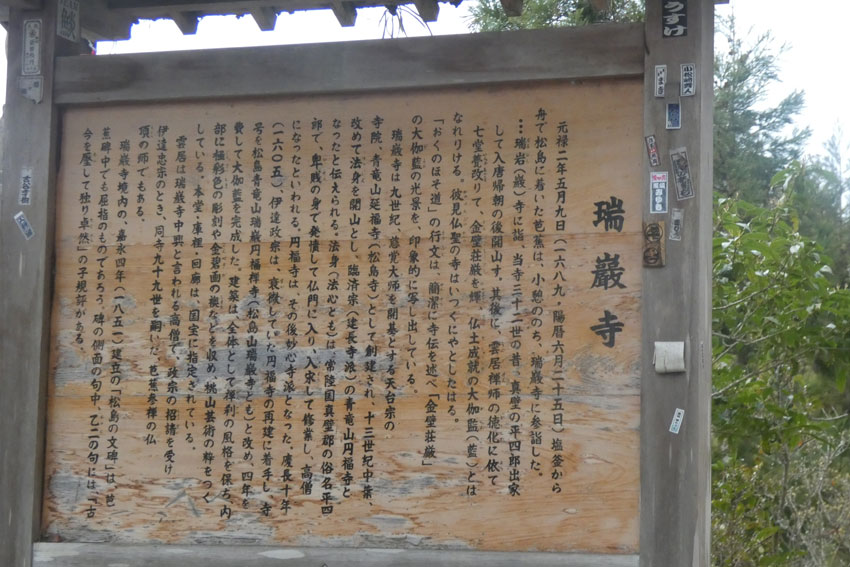 瑞巌寺
元禄二年五月九日(一六八九・陽暦六月二十五日)塩釜から
舟で松島に着いた芭蕉は、小憩ののち、瑞巌寺に参詣した。
…瑞岩(巌)寺に詣、当寺三十二世の昔、真壁の平四郎出家
して入唐帰朝の後開山す。其後に、雲居禅師の徳化に依て
七堂甍改りて、金壁荘厳光を輝、仏土成就の大伽藍(藍)とは
なれりける。彼見仏聖の寺はいづくにやとしたはる。
「おくのほそ道」の行文は、簡潔に寺伝を述べ「金壁荘厳」
の大伽藍の光景を、印象的に写し出している。
瑞巌寺は九世紀、慈覚大師を開基とする天台宗の
寺院、青竜山延福寺(松島寺)として創建され、十三世紀中葉、
改めて法身を開山とし、臨済宗(建長寺派)の青竜山円福寺と
なったと伝えられる。法身(法心とも)は、常陸国真壁郡の俗名平四
郎で、卑賤の身で発憤して仏門に入り、入宋して修業し、高僧
になったといわれる。円福寺は、その後妙心寺派となった。慶長十年
(一六〇五)、伊達政宗は、衰微していた円福寺の再建に着手し、寺
号を松島青竜山瑞巌円福禅寺(松島山瑞巌寺とも)と改め、四年を
費して大伽藍を完成した。建築は全体として禅刹の風格を保ち、内
部に極彩色の彫刻や金壁面の襖などを収め、桃山芸術の粋をつく
している。本堂・庫裡・回廊は、国宝に指定されている。
雲居は瑞巌寺中興と言われる高僧で、政宗の招請を受け
伊達忠宗のとき、同寺九十九世を嗣いだ。芭蕉参禅の仏
頂の師でもある。
瑞巌寺境内の、嘉永四年(一八五一)建立の「松島の文碑」は、芭
蕉碑中でも屈指のものであろう。碑の側面の句中、乙二の句には、「古
今を壓して独り卓然」の子規評がある。